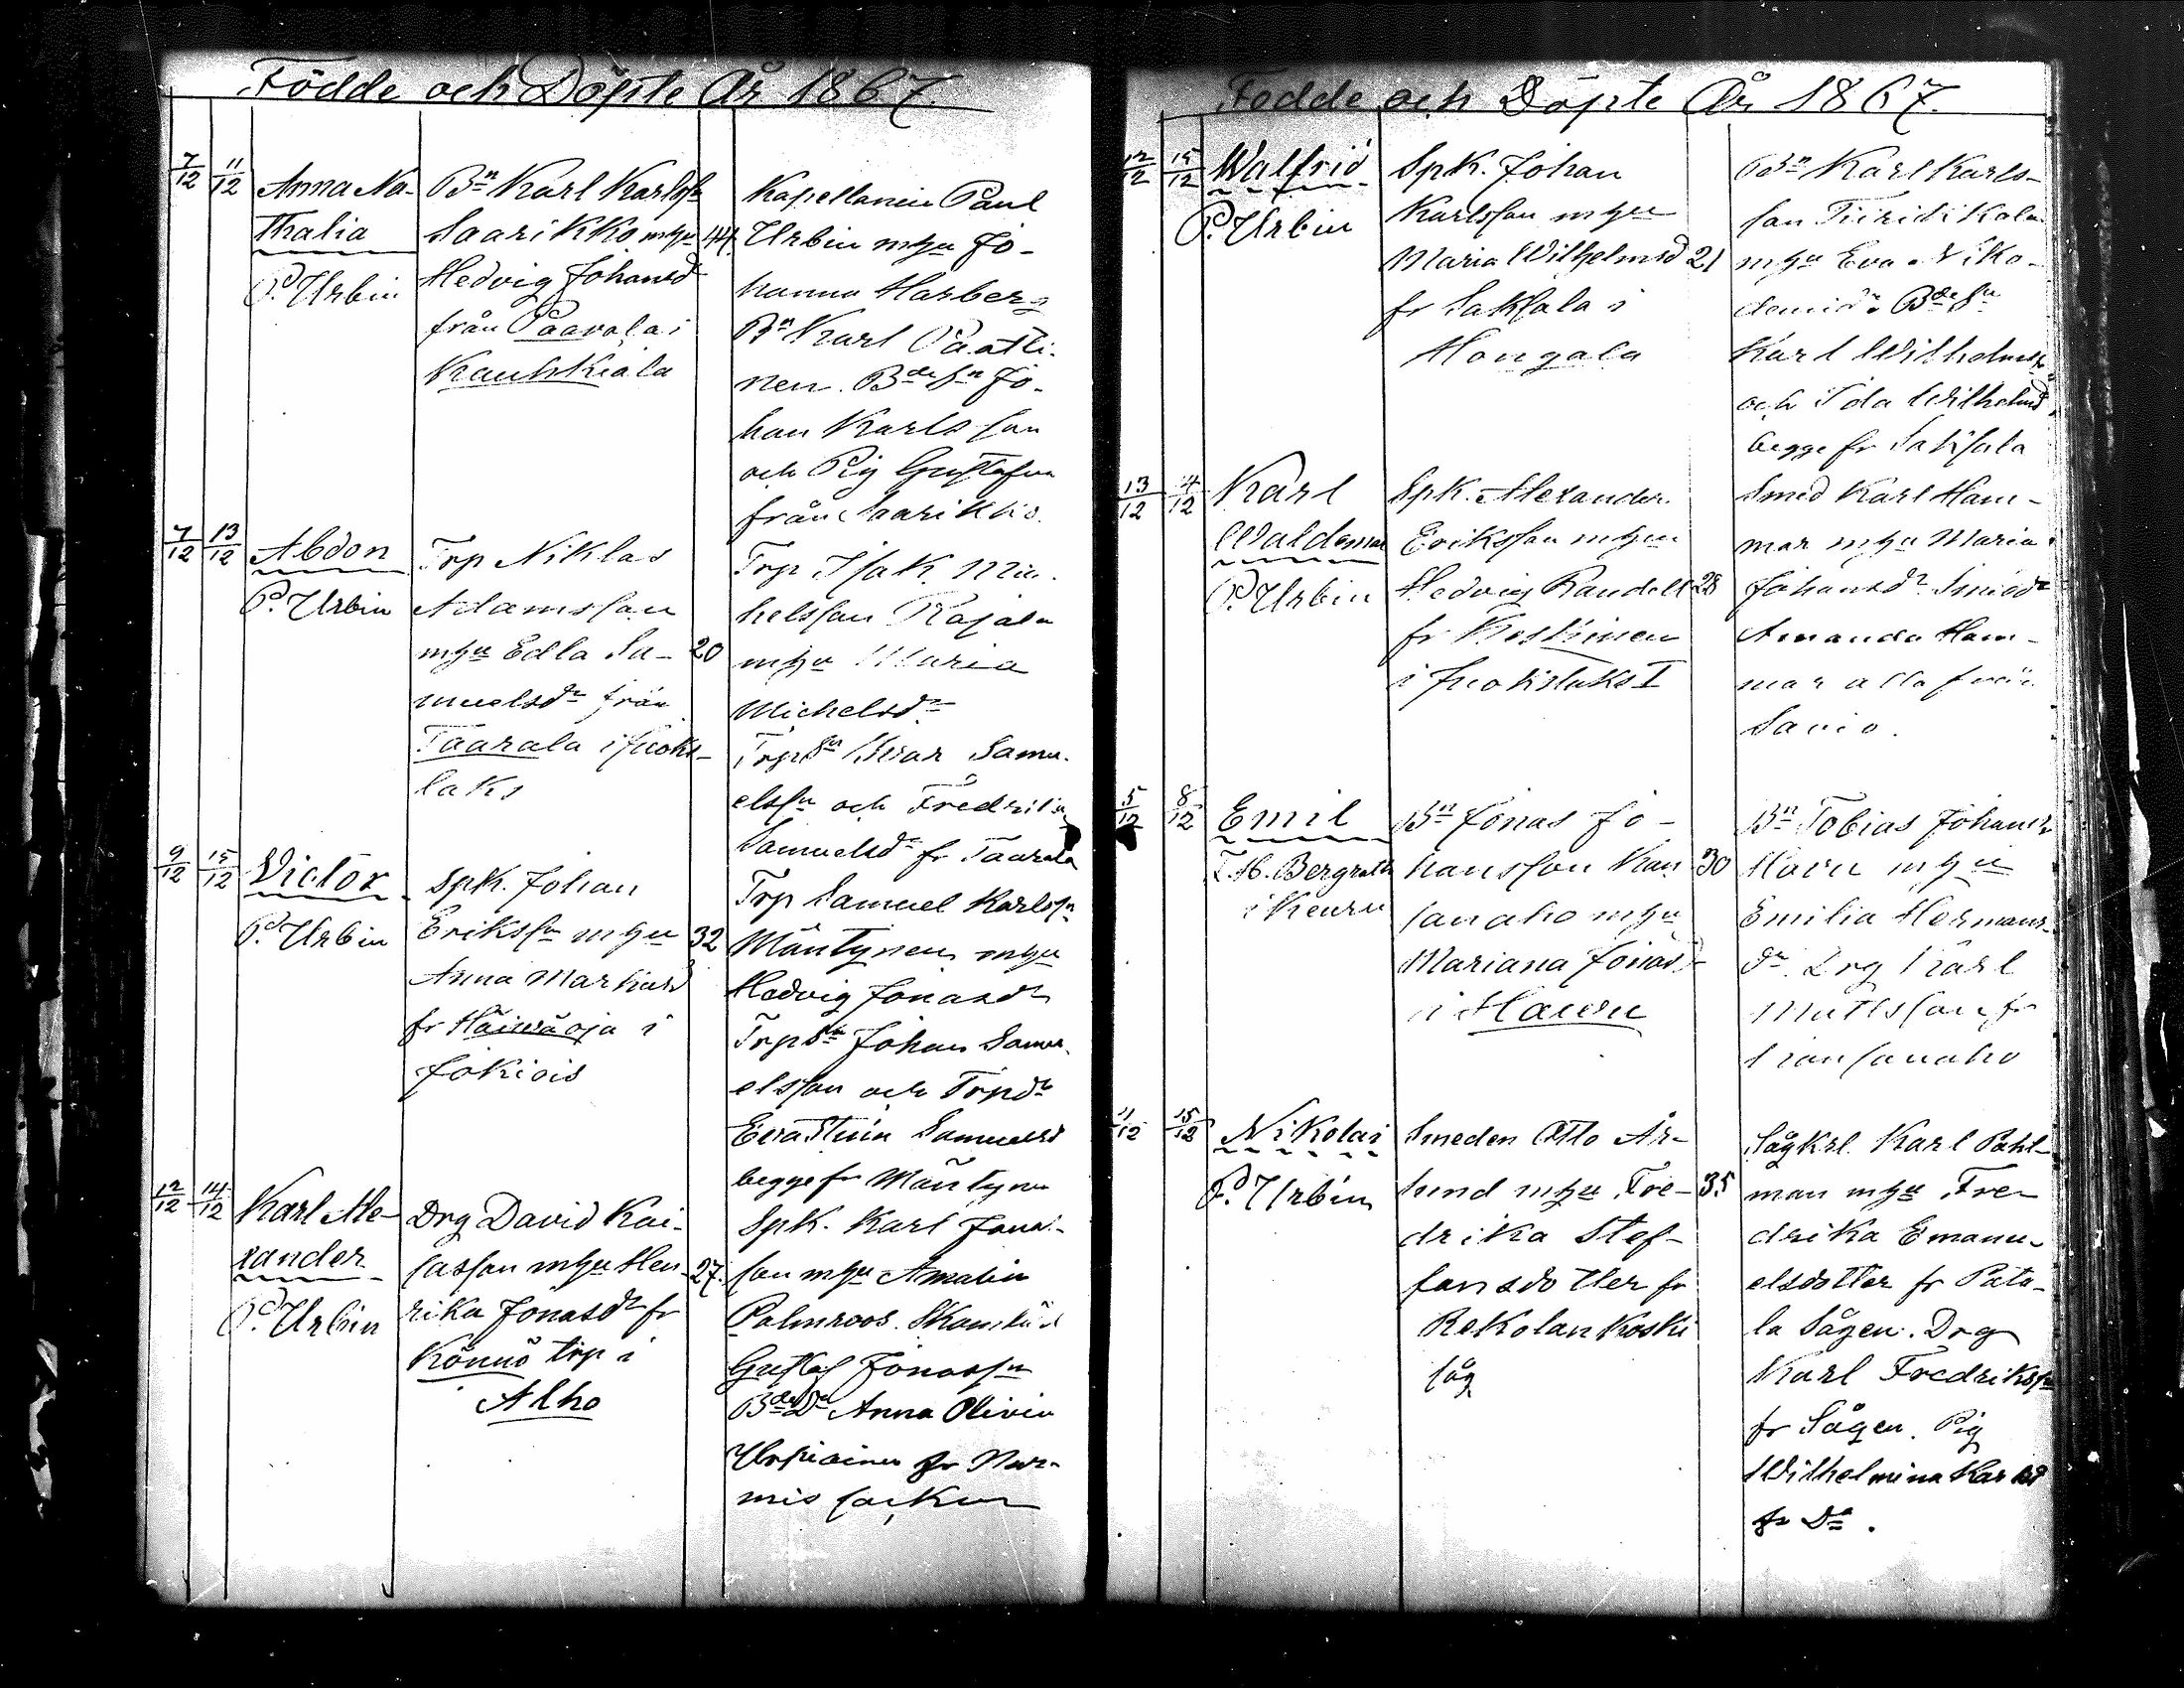 Födde och Döpte År 1867.
7/12 11/12 Anna Na-
thalia
P. Urbin
Bn Karl Karlssn
Saarikko mhu 44
Hedvig Johansd
från Paavola i
Kauhkiala
Kapellanen Paul
Urbin mhu Jo-
hanna Harberg
Bn Karl Paatti-
nen. Bdesn Jo-
han Karlsson
och Pig Gustafva
från Saarikko.
7/12 13/12 Abdon
P. Urbin
Trp Niklas
Adamsson
mhu Edla Sa- 20
muelsdr från
Taarala i Juoks-
laks
Trp Isak Mic-
helsson Rajala
mhu Maria
Michelsdr
Trpsn Samu-
elssn och Fredrika
Samuelsdr fr Taarala
9/12 15/12 Victor
P. Urbin
Spk. Johan
Erikssn mhu 32
Anna Markusd
fr Heinäoja i
Jokiois
Trp Samuel Karlssn
Mäntynen mhu
Hedvig Jonasdr
Trpsn Johan Samu-
elsson och Trpdr
Eva Stina Samuelsd
begge fr Mäntynen
12/12 14/12 Karl Ale-
xander
P. Urbin
Drg David Kai-
sasson mhu Hen- 27.
rika Jonasdr fr
Könnö trp i
Alho
Spk. Karl Jonas-
son mhu Amalia
Palmroos.
Gustaf Jonassn
Bdedr Anna Olivia
fr Nur-
mis
Födde och Döpte År 1867.
12/12 15/12 Walfrid
P. Urbin
Spk. Johan
Karlsson mhu
Maria Wilhelmsd 21
fr Saksala i
Hongala
Bn Karl Karls-
son
mhu Eva Niko-
demidr. Bdesn
Karl Wilhelmss
och Ida Wilhelmsd
begge fr Saksala
13/12 14/12 Karl
Waldemar
P. Urbin
Spk. Alexander
Eriksson mhu
Hedvig Randell 28
fr Koskinen
i Juokslaks I
Smed Karl Ham-
mar mhu Maria
Johansdr. Smeddr
Amanda Ham-
mar alla från
Savio.
5/12 8/12 Emil
F. H. Bergroth
i Keuru
Bn Jonas Jo-
hansson Kan- 30
sanaho mhu
Mariana Jonasd
i Hauru
Bn Tobias Johanss
Hauru mhu
Emilia Hermans-
dr. Drg Karl
Mattsson fr
Kansanaho
11/12 15/12 Nikolai
P. Urbin
Smeden Otto År-
lund mhu Fre- 35
drika Stef-
fansdotter fr
Rekolankoski
såg
Sågkrl. Karl Pohl-
man mhu Fre-
drika Emanu-
elsdotter fr Pata-
la Sågen. Drg
Karl Fredrikssn
fr Sågen. Pig
Wilhelmina Karlsd
fr Do.